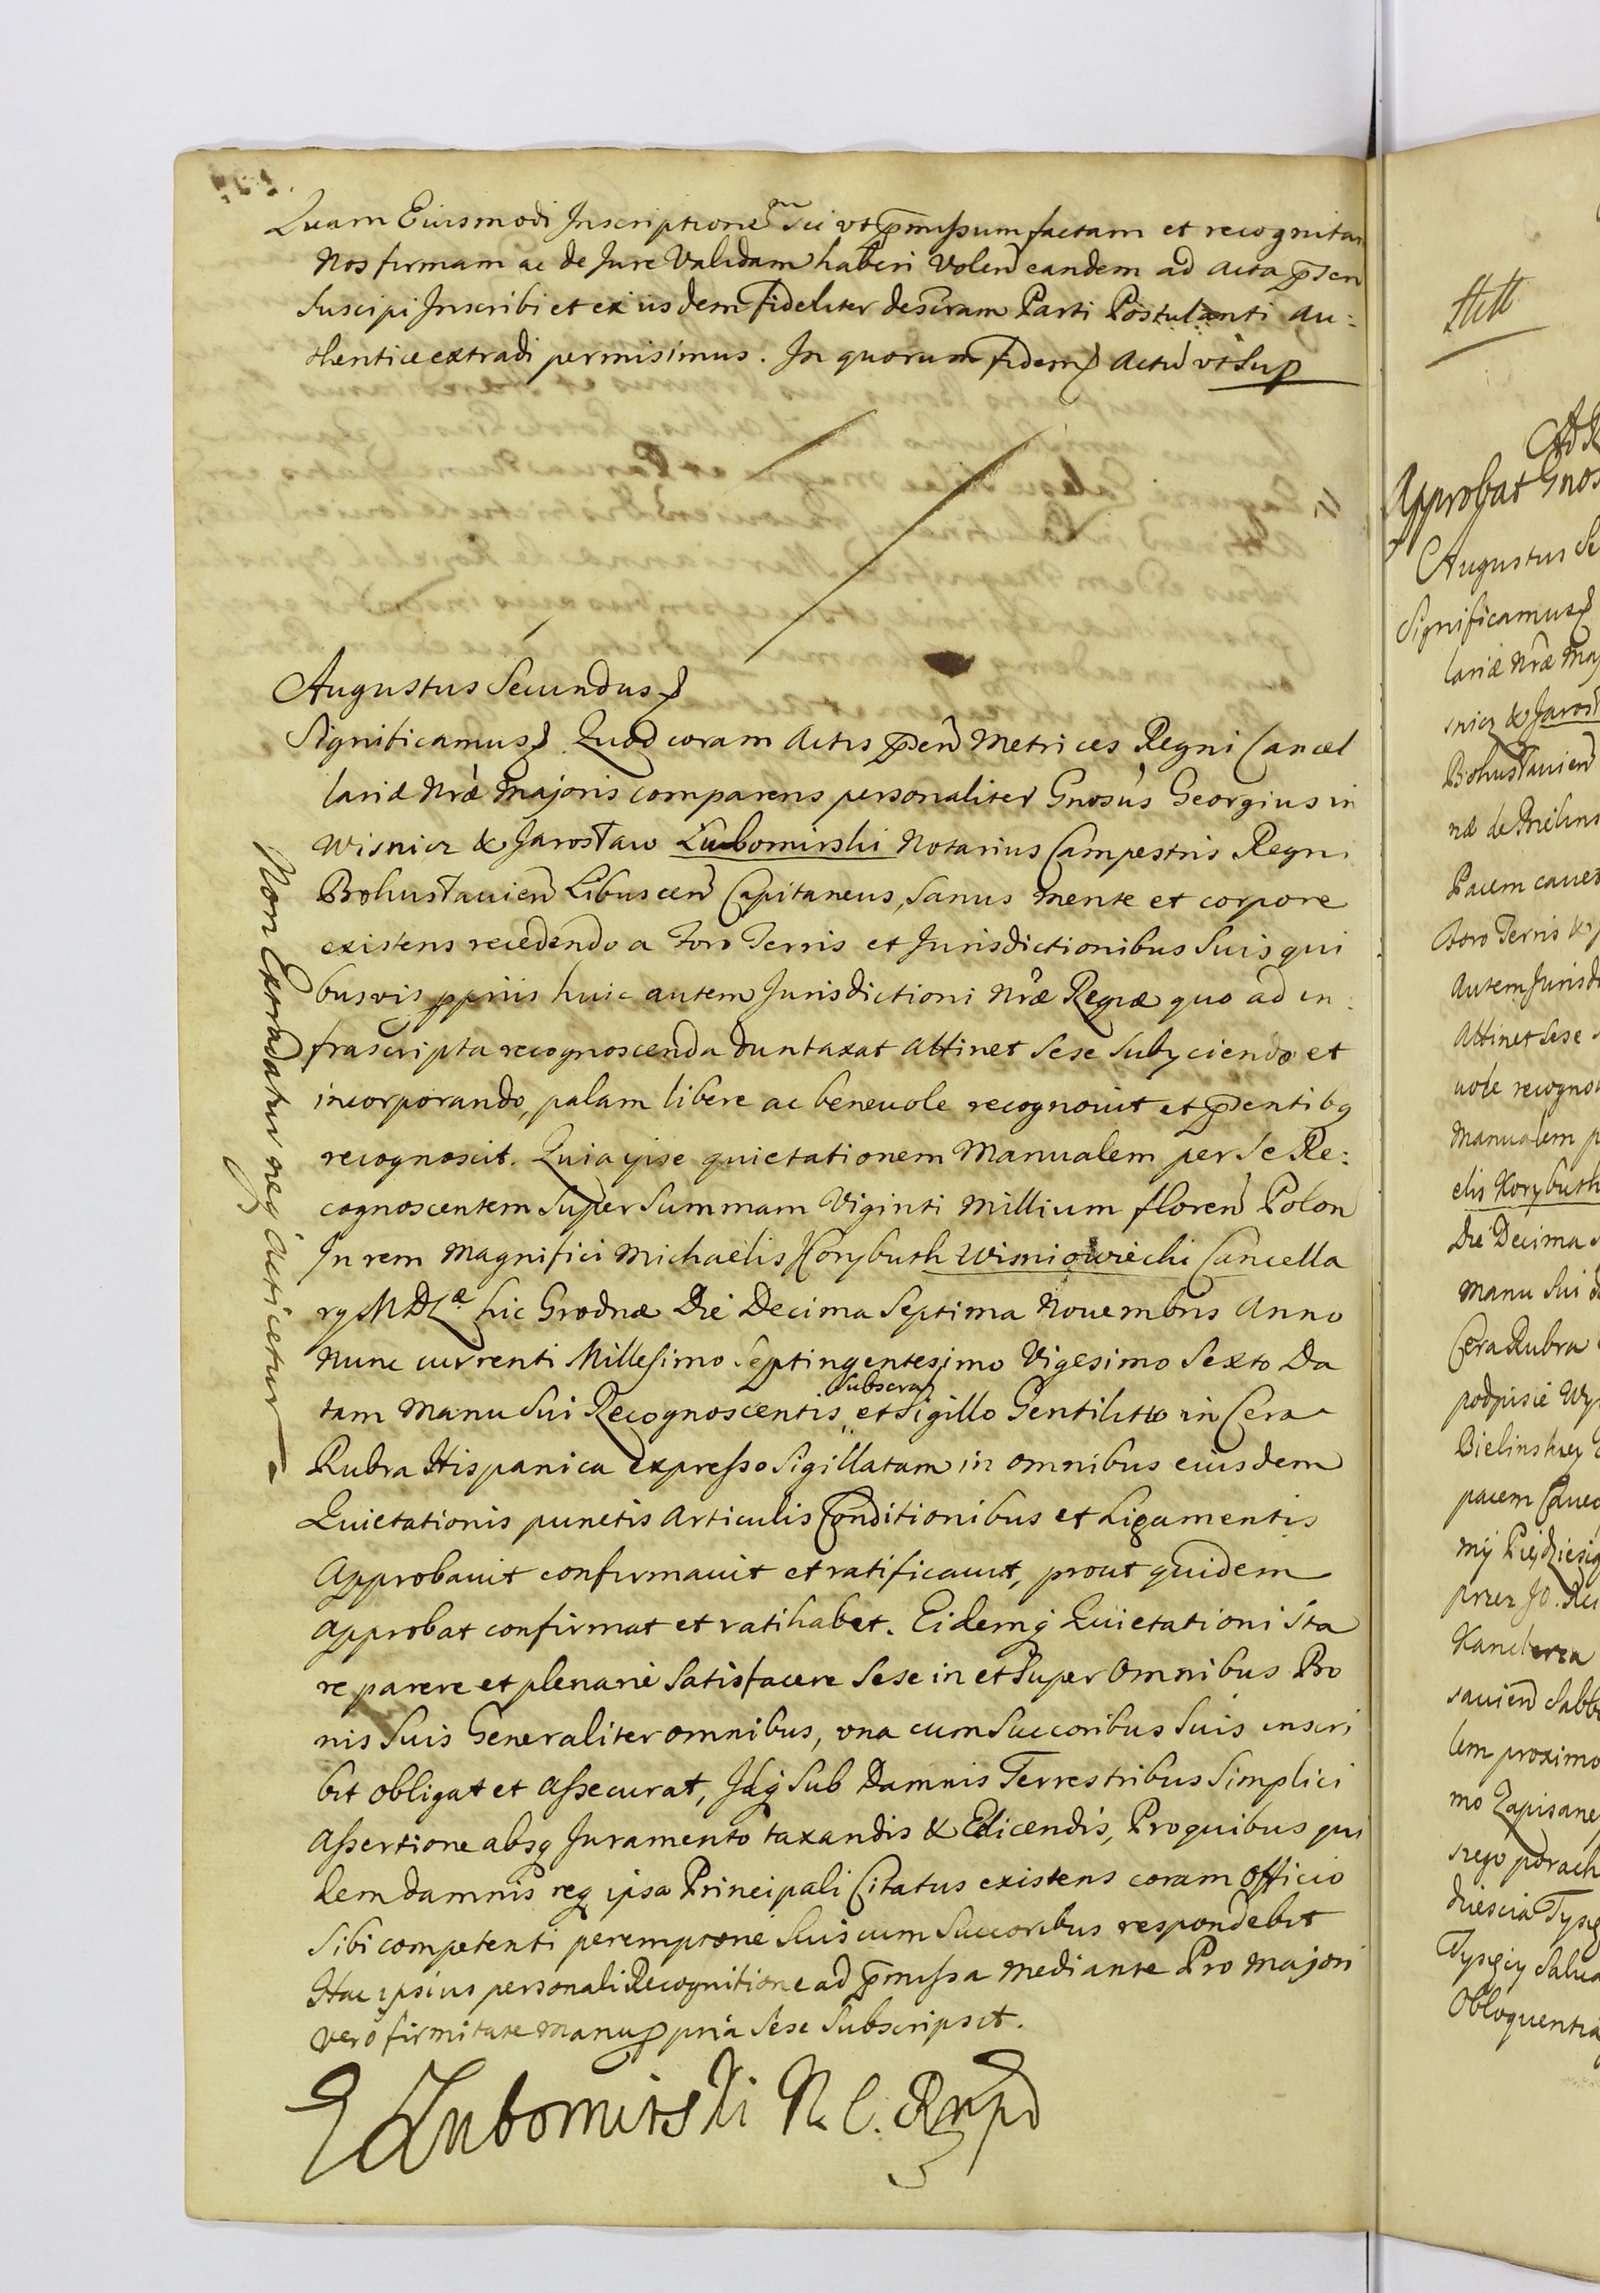 Quam Eiusmodi Inscriptionem sic vt p̄missum factam et recognitam
Nos firmam ac de Jure Validam haberi Volen̄ eandem ad Acta p̄sen
Suscipi Inscribi et ex iisdem fideliter descram Parti Postulanti Au:
thentice extradi permisimus. In quorum fidem Actũ vt Sup
Augustus Secundus
Significamus Quod coram Actis p̄sen̄ Metrices Regni Cancel
lariæ Nræ Majoris comparens personaliter Gnosus Georgius in
Wisnicz & Jarosław Lubomirski Notarius Campestris Regni
Bohusłavien̄ Libuscen̄ Capitaneus, Sanus mente et corpore
existens recedendo a Foro Terris et Jurisdictionibus Suis qui
busvis ppriis huic autem Jurisdictioni Nræ Regiæ quo ad in
frascripta recognoscenda duntaxat Attinet Sese Subyciendo et
incorporando, palam libere ac beneuole recognouit et p̄sentibq
recognoscit. Quia ipse quietationem Manualem per Se Re:
cognoscentem Super Summam Viginti Millium floren̄ Polon
In rem Magnifici Michaelis Korybuth Wisniowiecki Cancella
ry M D Læ hic Grodnæ Die Decima Septima Nouembris Anno
Nunc currenti Millesimo Septingentesimo Vigesimo Sexto Da
tam Manu Sui Recognoscentis subscram et Sigillo Gentilitio in Cera
Rubra Hispanica expresso Sigillatam in omnibus eiusdem
Quietationis punctis Articulis Conditionibus et Ligamentis
Approbauit confirmauit et ratificauit, prout quidem
Approbat confirmat et ratihabet. Eidemq Quietationi Sta
re parere et plenarie Satisfacere Sese in et Super Omnibus Bo
nis Suis Generaliter omnibus, vna cum Succoribus Suis inscri
bit obligat et Assecurat, Idq Sub Damnis Terrestribus Simplici
Assertione absq Juramento taxandis & Edicendis, Pro quibus qui
dem damnis req ipsa Principali Citatus existens coram Officio
Sibi competenti peremptorie Suis cum Succoribus respondebit
Hac ipsius personali Recognitione ad p̄missa mediante Pro Majori
vero firmitate Manu ppria Sese Subscripsit.
Lubomirski N. C. R mpd
Non Extradatur neq Acticetur
Approbat Gnos
Augustus Se
Significamus
lariæ Nræ Maj
snicz & Jaros
Bohusłauien̄
Pacem caues
Foro Terris &
Autem Jurisdi
Attinet Sese
uole recogno
Manualem p
elis Korybuth
Die Decima
Manu Sui
Cera Rubra
podpisie Wy
Bielinskey
pacem Caue
przez Jo.
Kanclerza
lem proximo
mo Zapisane
Obloquentia